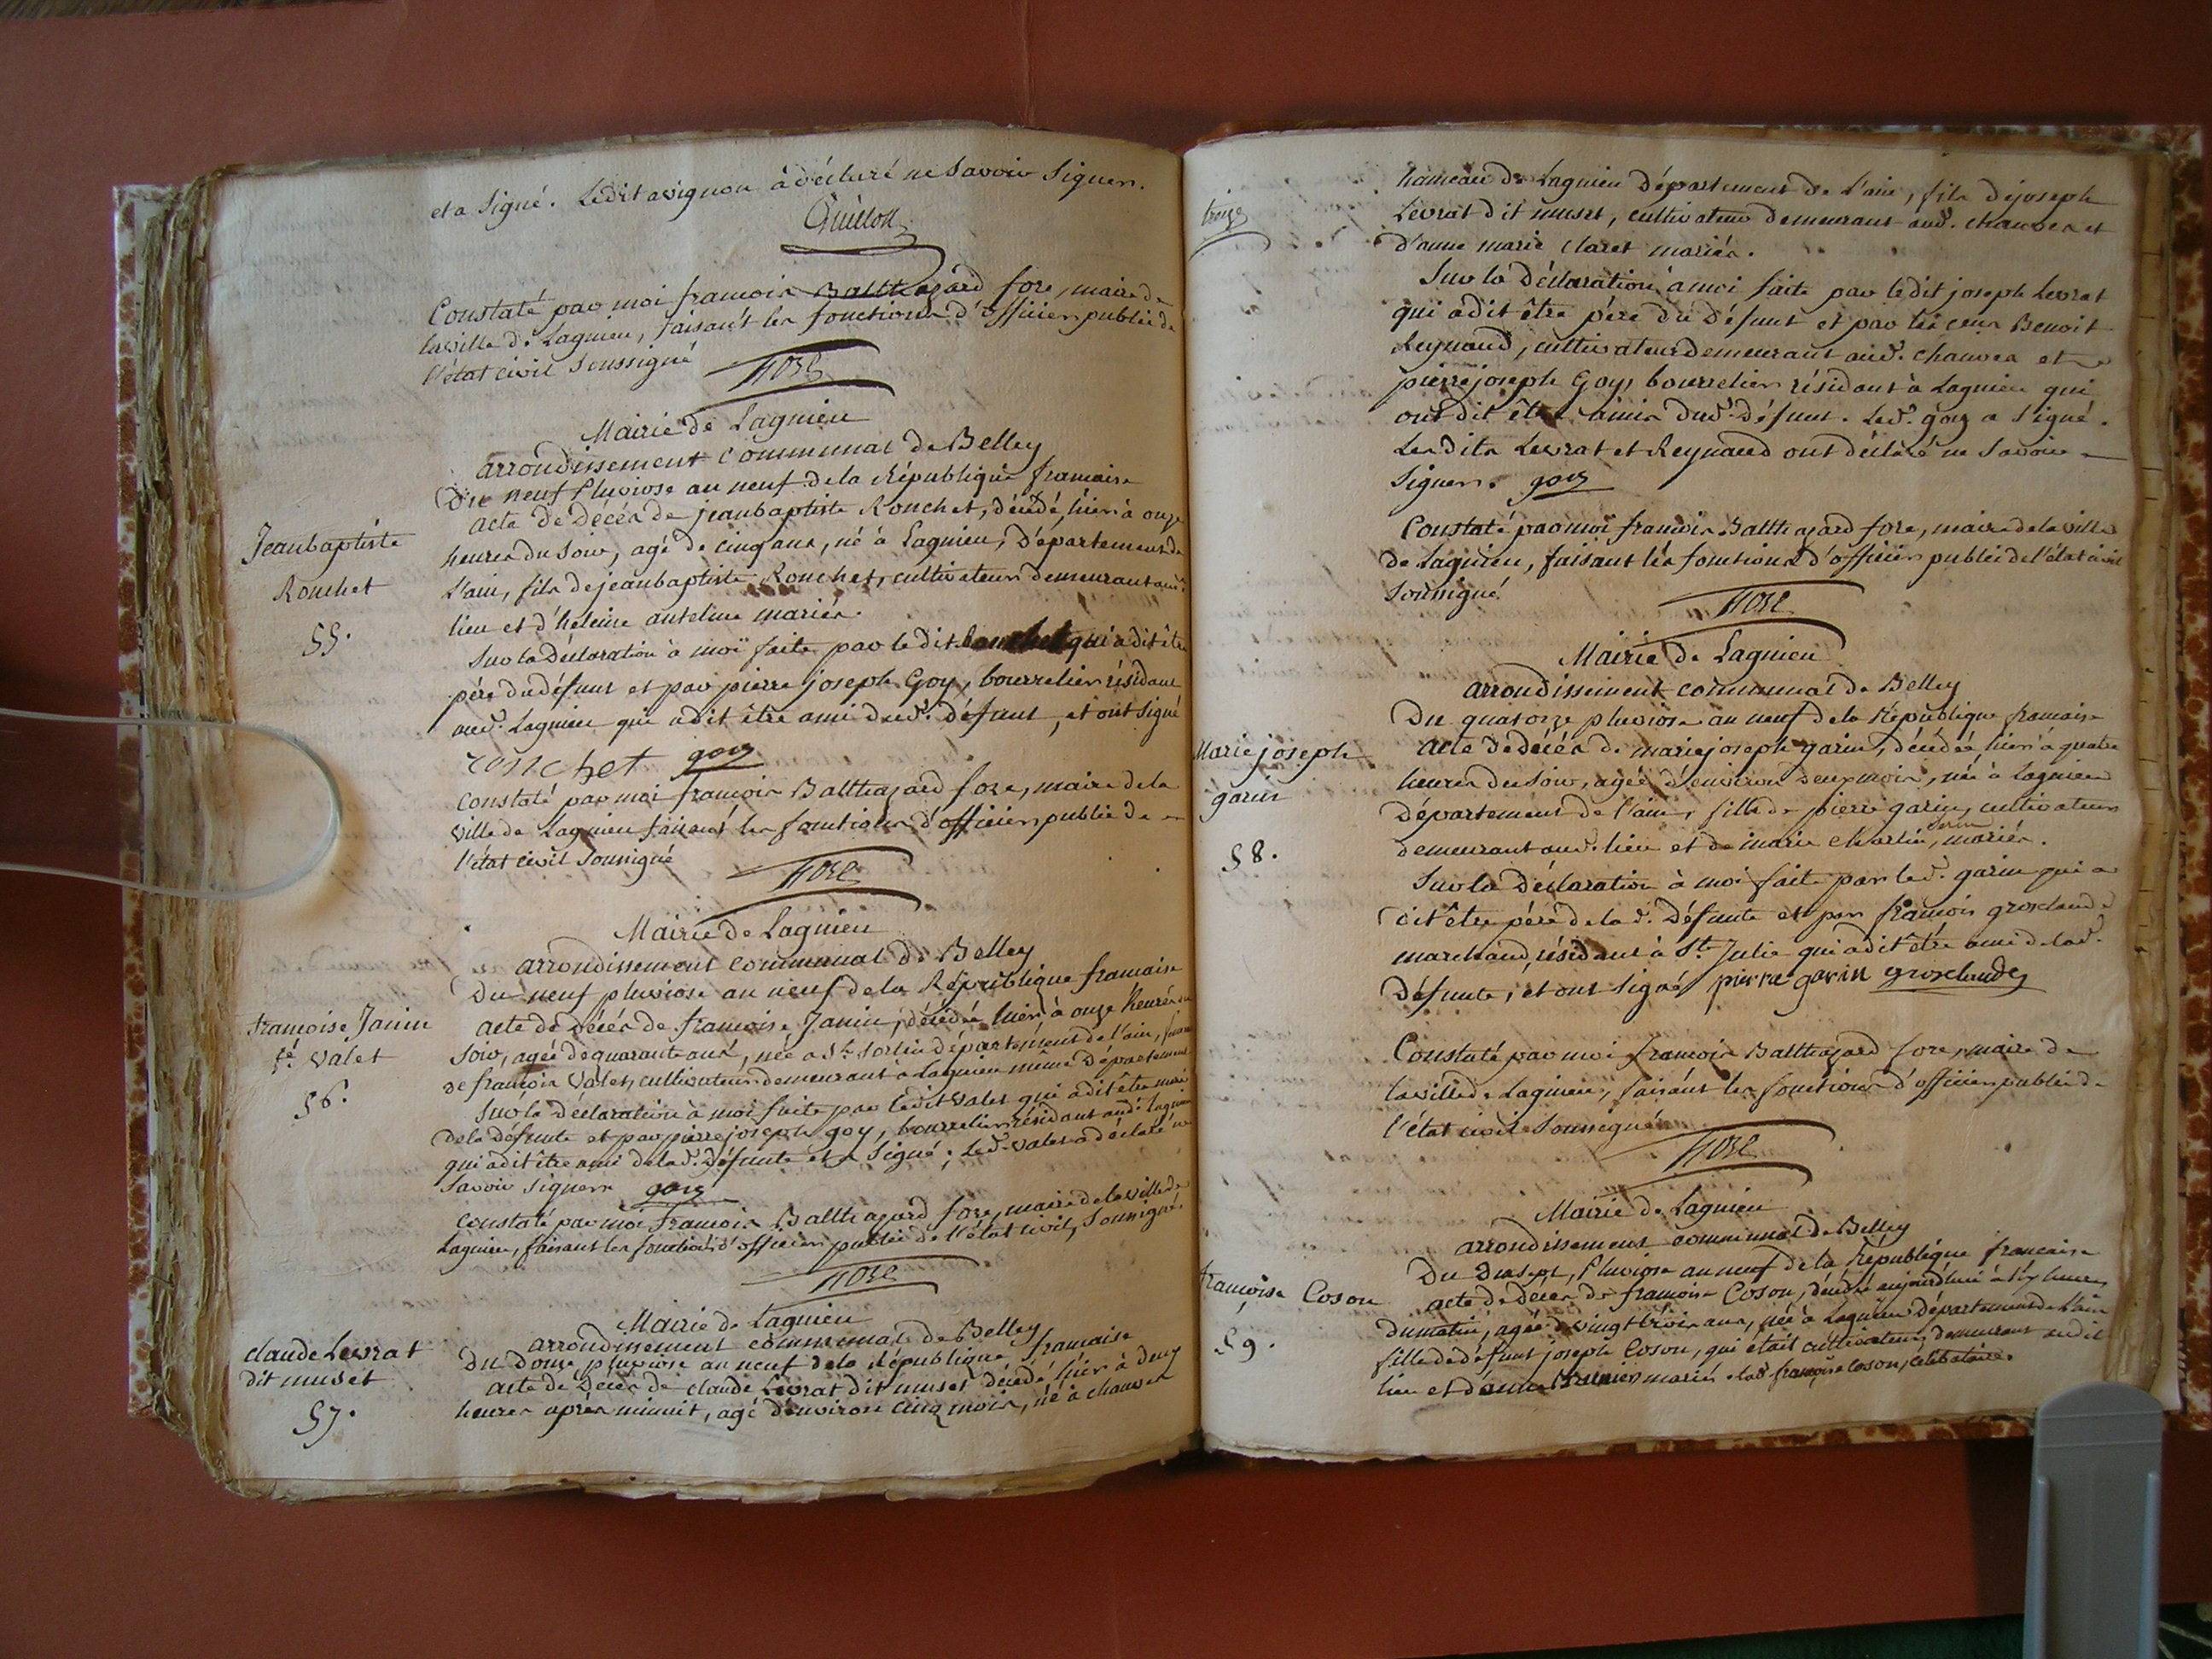 et a signé. Ledit avignon à déclaré ne Savoir Signer.
Guillon
Constaté par moi francois Balthazard fore, maire de
la ville de Lagnieu, faisant les fonctions d'officier public de
l'état civil Soussigné
fore
Mairie de Lagnieu
arrondissement Communal de Belley
Du neuf Pluviose an neuf de la République francaise
acte de Décés de jeanbaptiste Ronchet, décédé hier à onze
Jeanbaptiste
Ronchet
55.
heures du Soir, agé de cinq ans, né à Lagnieu, Département de
L'ain, fils de jeanbaptiste Ronchet, cultivateur demeurant aud.
lieu et d'heleine anteline mariés.
Sur la Déclaration à moi faite par le dit qui a dit être
pére du défunt et par pierre joseph Goy, bourrelier résidant
aud. Lagnieu qui a dit être ami dud. Défunt, et ont Signé
ronchet goy
Constaté par moi francois Balthazard fore, maire de la
ville de Lagnieu faisant les fonctions d'officier public de
l'état civil Soussigné
fore
Mairie de Lagnieu
arrondissement Communal de Belley
Du neuf pluviose an neuf de la République francaise
francoise Janin
fe. Valet
56.
acte de Décés de francoise Janin, décédée hier à onze heures du
Soir, agée de quarante ans, née a St. Sorlin département de l'ain, femme
de francois Valet, cultivateur demeurant à Lagnieu même Département
Sur la Déclaration à moi faite par ledit Valet qui a dit être mari
de la défunte et par pierre joseph goy, bourrelier résidant aud. Lagnieu
qui a dit être ami de lad. Défunte et a Signé; Led. Valet a déclaré ne
Savoir Signer goy
Constaté par moi francois Balthazard fore, maire de la ville de
Lagnieu, faisant les fonctions d'officier public de l'état civil, Soussigné
fore
Mairie de Lagnieu
arrondissement communal de Belley
Du Douze pluviose an neuf de la République francaise
claude Levrat
dit muset
57.
acte de Décés de claude Levrat dit muset décédé hier à deux
heures aprés minuit, agé d'environ cinq mois, né à chauves
treize
hameau de Lagnieu Département de L'ain, fils de joseph
Levrat dit muset, cultivateur demeurant aud. chauves et
d'anne marie claret mariés.
Sur la déclaration à moi faite par ledit joseph Levrat
qui a dit être pére du défunt et par Benoit
Reynaud, cultivateur demeurant aud. chauves et
pierre joseph Goy, bourrelier résidant à Lagnieu qui
ont dit être amis dud. défunt. Led. goy a Signé.
Les dits Levrat et Reynaud ont déclaré ne Savoir
Signer. goy
Constaté par moi francois Balthazard fore, maire de la ville
de Lagnieu, faisant les fonctions d'officier public de l'état civil
Soussigné
fore
Mairie de Lagnieu
arrondissement communal de Belley
Du quatorze pluviose an neuf de la République francaise
Marie joseph
garin
58.
acte de décés de marie joseph garin, décédée hier à quatre
heures du Soir, agée d'environ deux mois, née à Lagnieu
Département de l'ain, fille de pierre garin, cultivateur
demeurant aud. lieu et de marie mariés.
Sur la Déclaration à moi faite par led. garin qui a
dit être pére de la d. Défunte et par francois grosclaude
marchand, résidant à St. Julie qui a dit être ami de lad.
Défunte, et ont Signé, pierre garin grosclaude
Constaté par moi francois Balthazard fore, maire de
la ville de Lagnieu, faisant les fonctions d'officier public de
l'état civil Soussigné
fore
Mairie de Lagnieu
arrondissement communal de Belley
Du Pluviose an neuf de la République francaise
françoise Coson
59.
acte de Décés de francoise Coson, décédée aujourd'hui à six heures
du matin, agée de vingt trois ans, née à Lagnieu département de l'ain
fille de défunt joseph Coson, qui était cultivateur, demeurant audit
lieu et d'anne mariés. lad. françoise Coson, célibataire.